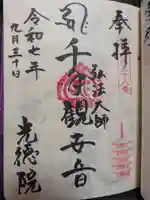 奉拝
弘法大師
千手観世音
令和七年
九月三十日
光徳院